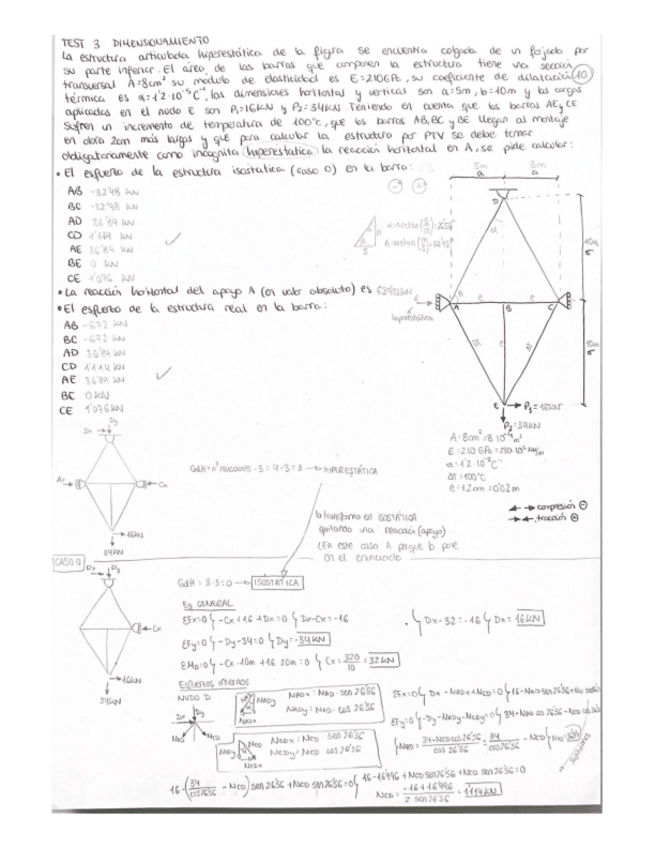 TEST 3 DIMENSIONAMIENTO
La estructura articulada hiperestática de la figura se encuentra colgada de un forjado por
su parte inferior. El área de las barras que componen la estructura tiene una sección
transversal A=8cm² su modulo de elasticidad es E=210GPa, su coeficiente de dilatación 10
térmica es α=1'2·10⁻⁵C⁻¹, las dimensiones horizontal y vertical son a=5m, b=10m y las cargas
aplicadas en el nudo E son P₁=16KN y P₂=34KN Teniendo en cuenta que las barras AE y CE
sufren un incremento de temperatura de 100°C, que las barras AB, BC y BE llegan al montaje
en obra 2cm más largas y que para calcular la estructura por PTV se debe tomar
obligatoriamente como incógnita hiperestatica la reacción horizontal en A, se pide calcular:
• El esfuerzo de la estructura isostatica (caso 0) en la barra:
AB -32'48 KN
BC -32'48 KN
AD 36'89 KN
CD 1'114 KN
AE 36'89 KN
BE 0 KN
CE 1'076 KN
• La reacción horizontal del apoyo A (en valor absoluto) es
• El esfuerzo de la estructura real en la barra:
AB -672 KN
BC -672 KN
AD 36'89 KN
CD 1'114 KN
AE 36'89 KN
BC 0 KN
CE 1'076 KN
5m 5m
a a
D
α
10m
A B C
hiperestática
ΔT e ΔT
10m
E P₁=16KN
P₂=34KN
A=8cm²=8·10⁻⁴m²
E=210 GPa=210·10⁶ KN/m
α=1'2·10⁻⁵C⁻¹
ΔT=100°C
e=1.2cm=0'02m
compresión ⊖
tracción ⊕
Dx Dy
Ax Cx
16KN
34KN
GdH= nº reacciones-3=4-3=1 → HIPERESTÁTICA
la transformo en ISOSTÁTICA
quitando una reacción (apoyo)
(En este caso A porque lo pone
en el enunciado
CASO 0
Dx Dy
Cx
16KN
34KN
GdH= 3-3=0 → ISOSTATICA
Eq GENERAL
ΣFx=0 -Cx+16+Dx=0 Dx-Cx=-16
• Dx-32=-16 Dx=16KN
ΣFy=0 -Dy-34=0 Dy=-34KN
ΣMD=0 -Cx·10m+16·20m=0 Cx=320/10=32KN
ESFUERZOS INTERNOS
NUDO D
Dx Dy
NAD NCD
NADx=NAD·sen26'56
NADy=NAD·cos26'56
NCDx=NCD·sen26'56
NCDy=NCD·cos26'56
ΣFx=0 Dx-NADx+NCDx=0
ΣFy=0 -Dy-NADy-NCDy=0 34-NAD cos26'56-NCD
NAD=34-NCD cos26'56/cos26'56=34/cos26'56-NCD
16-(34/cos26'56-NCD)sen26'56+NCD sen26'56=0 16-16'996+NCD sen26'56+NCD sen26'56=0
NCD=-16+16'996/2·sen26'56=1'114KN